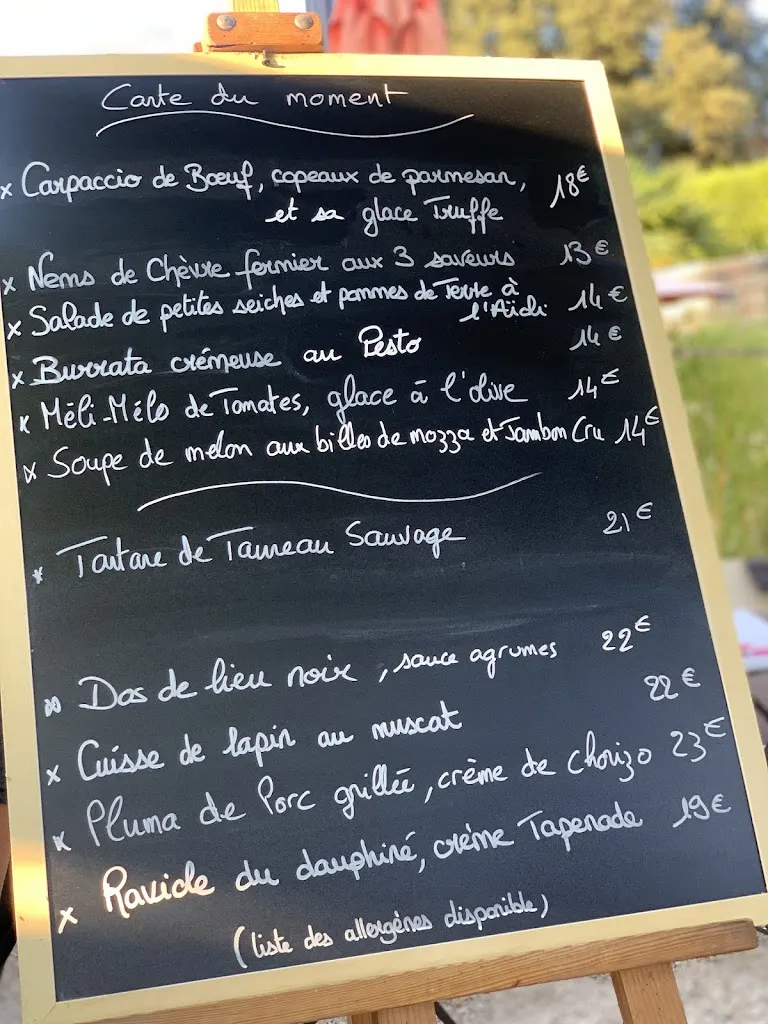 Carte du moment
x Carpaccio de Bœuf, copeaux de parmesan, 18€
et sa glace Truffe
x Nems de Chèvre fermier aux 3 saveurs 13€
x Salade de petites seiches et pommes de Terre à
l'Aïoli 14€
x Burrata crémeuse au Pesto 14€
x Méli-Mélo de Tomates, glace à l'olive 14€
x Soupe de melon aux billes de mozza et Jambon Cru 14€
x Tartare de Taureau Sauvage 21€
x Dos de lieu noir, sauce agrumes 22€
x Cuisse de lapin au muscat 22€
x Pluma de Porc grillée, crème de chorizo 23€
x Raviole du dauphiné, crème Tapenade 19€
(liste des allergénes disponible)